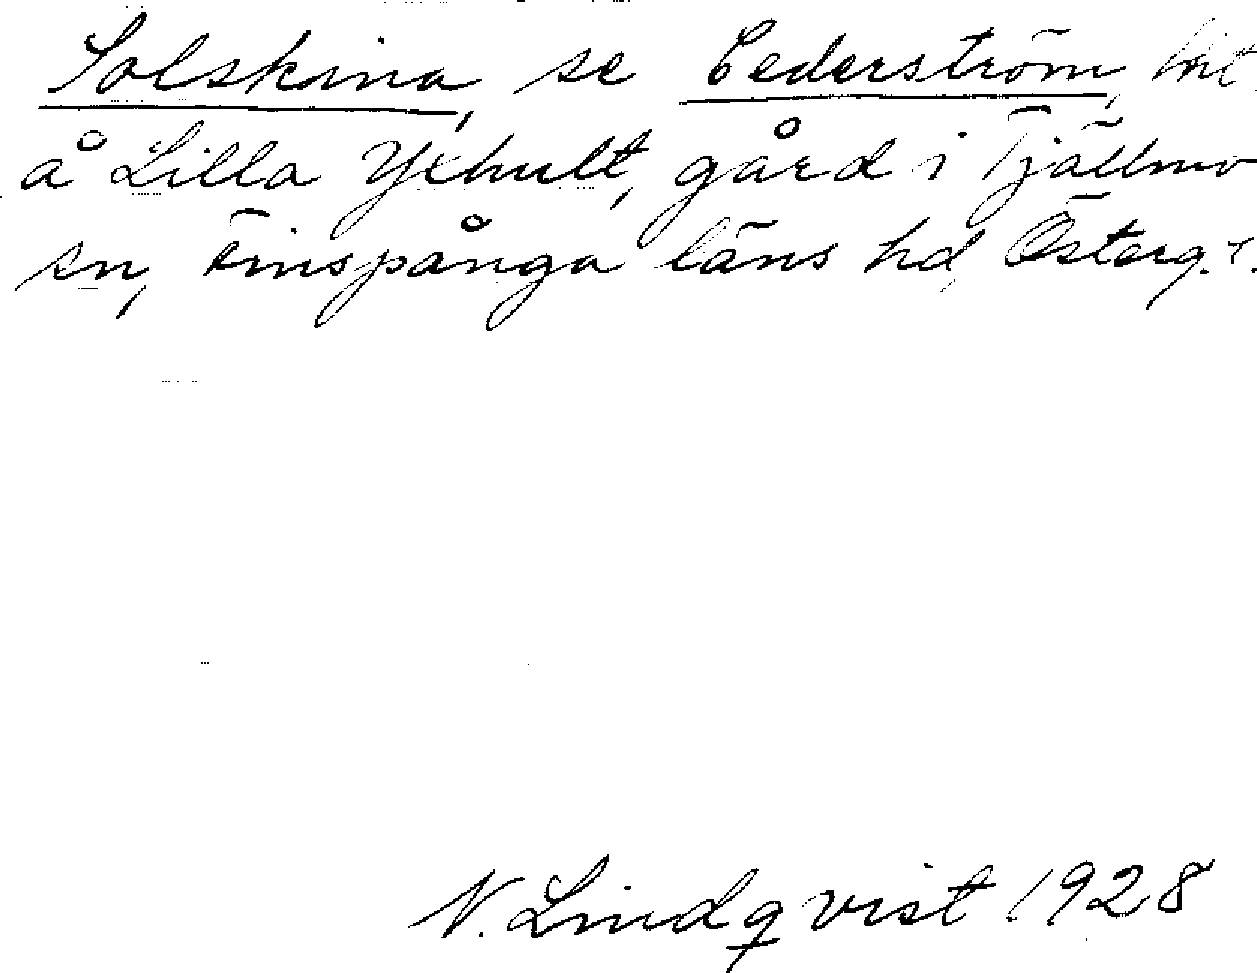 Solskina, se Cederström, lht
å Lilla Yxhult, gård i Tjällmo
sn, Finspånga läns hd, Österg. l.
N. Lindqvist 1928